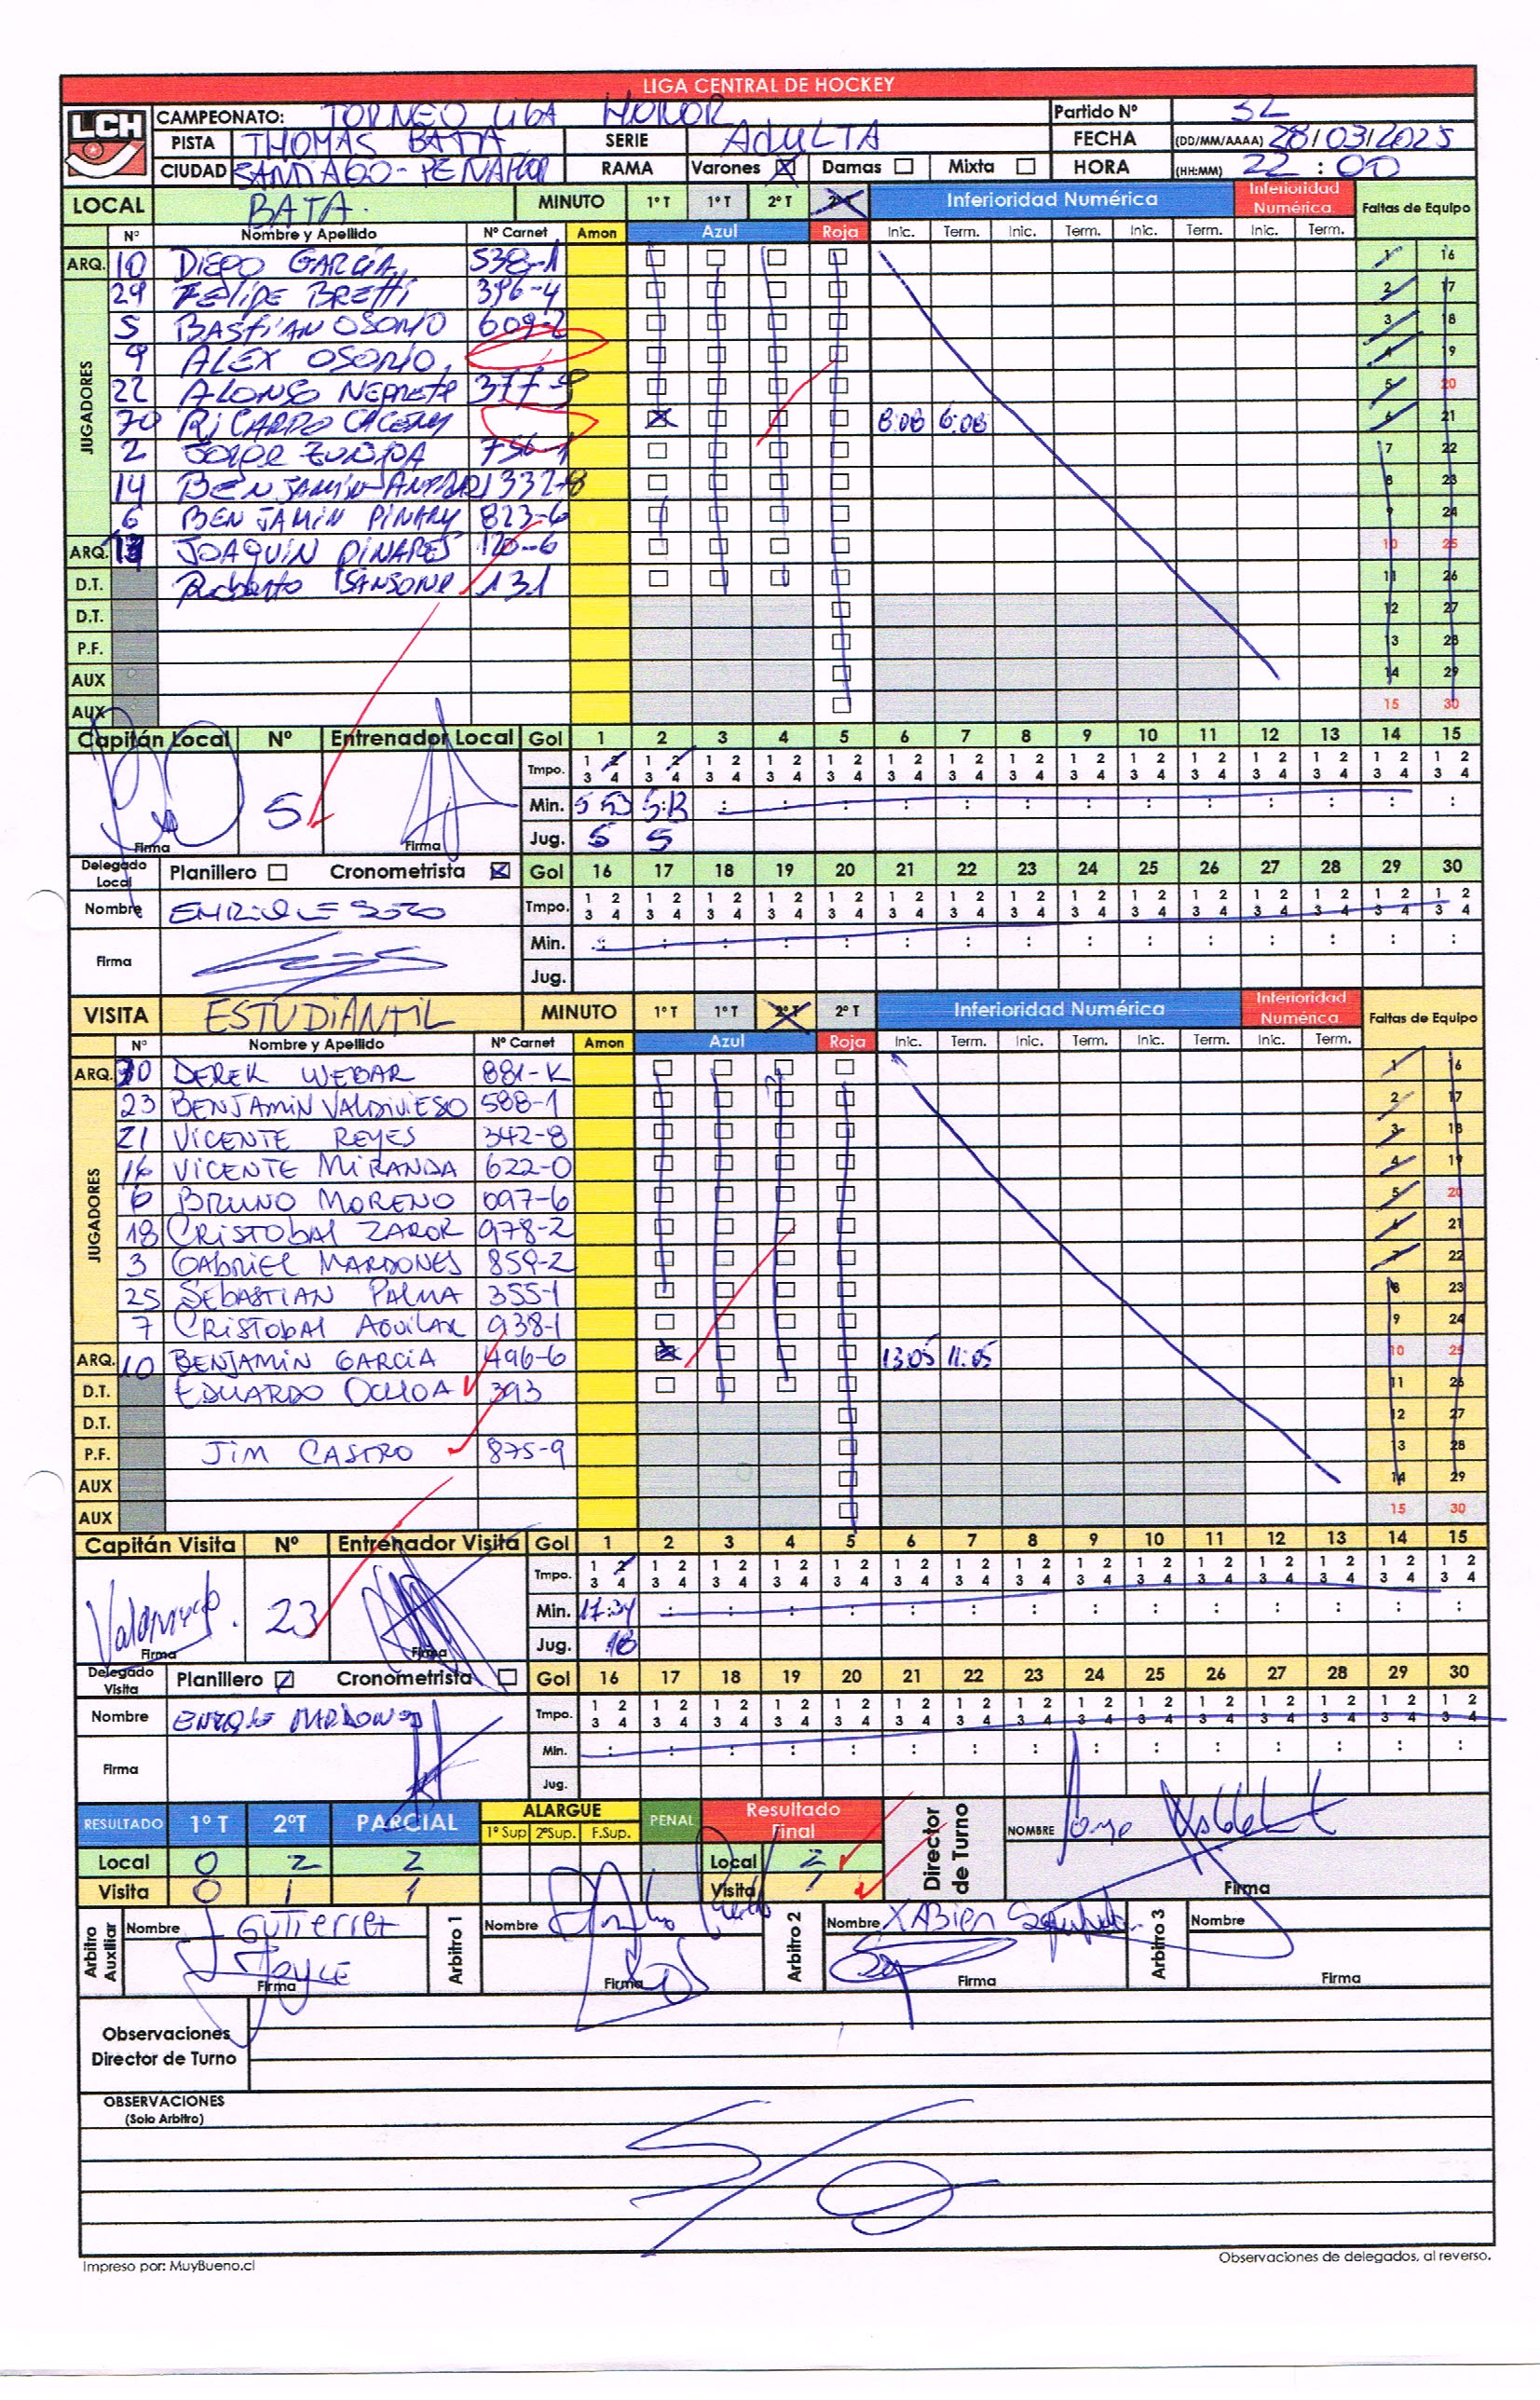 LIGA CENTRAL DE HOCKEY
LCH
CAMPEONATO: TORNEO LIGA HONOR Partido Nº 32
PISTA THOMAS BATA SERIE ADULTA FECHA (DD/MM/AAAA) 28/03/2025
CIUDAD SANTIAGO-PEÑAFLOR RAMA Varones Damas Mixta HORA (HH:MM) 22:00
LOCAL BATA. MINUTO 1º T 1º T 2º T Inferioridad Numérica Inferioridad Numérica. Faltas de Equipo
Nº Nombre y Apellido Nº Carnet Amon Azul Roja Inic. Term. Inic. Term. Inic. Term. Inic. Term.
ARQ. 10 DIEGO GARCIA 538-1 1 16
JUGADORES
29 FELIPE BRETTI 396-4 2 17
5 BASTIAN OSORIO 609-2 3 18
9 ALEX OSORIO 4 19
22 ALONSO 377-9 5 20
70 RICARDO 8:08 6:08 6 21
2 756-1 7 22
14 BENJAMIN 332-8 8 23
6 BENJAMIN 823-6 9 24
ARQ. JOAQUIN PINARES 120-6 10 25
D.T. Roberto SANSONE 131 11 26
D.T. 12 27
P.F. 13 28
AUX 14 29
AUX 15 30
Capitán Local Nº Entrenador Local Gol 1 2 3 4 5 6 7 8 9 10 11 12 13 14 15
Tmpo. 1 2 3 4 1 2 3 4 1 2 3 4 1 2 3 4 1 2 3 4 1 2 3 4 1 2 3 4 1 2 3 4 1 2 3 4 1 2 3 4 1 2 3 4 1 2 3 4 1 2 3 4 1 2 3 4 1 2 3 4
5 Min. 5 53 5:13
Firma Firma Jug. 5 5
Delegado Local Planillero Cronometrista Gol 16 17 18 19 20 21 22 23 24 25 26 27 28 29 30
Nombre ENRIQUE SOTO Tmpo. 1 2 3 4 1 2 3 4 1 2 3 4 1 2 3 4 1 2 3 4 1 2 3 4 1 2 3 4 1 2 3 4 1 2 3 4 1 2 3 4 1 2 3 4 1 2 3 4 1 2 3 4 1 2 3 4 1 2
Firma Min.
Jug.
VISITA ESTUDIANTIL MINUTO 1º T 1º T 2º T 2º T Inferioridad Numérica Inferioridad Numérica. Faltas de Equipo
Nº Nombre y Apellido Nº Carnet Amon Azul Roja Inic. Term. Inic. Term. Inic. Term. Inic. Term.
ARQ. DEREK WEBAR 881-K 1 16
JUGADORES
23 BENJAMIN VALDIVIESO 588-1 2 17
21 VICENTE REYES 342-8 3 18
16 VICENTE MIRANDA 622-0 4 19
6 BRUNO MORENO 097-6 5 20
18 CRISTOBAL ZAROR 978-2 6 21
3 GABRIEL MARDONES 859-2 7 22
25 SEBASTIAN PALMA 355-1 8 23
7 CRISTOBAL AGUILAR 938-1 9 24
ARQ. 10 BENJAMIN GARCIA 496-6 13:05 11:05 10 25
D.T. EDUARDO OCHOA 393 11 26
D.T. 12 27
P.F. JIM CASTRO 875-9 13 28
AUX 14 29
AUX 15 30
Capitán Visita Nº Entrenador Visita Gol 1 2 3 4 5 6 7 8 9 10 11 12 13 14 15
Tmpo. 1 2 3 4 1 2 3 4 1 2 3 4 1 2 3 4 1 2 3 4 1 2 3 4 1 2 3 4 1 2 3 4 1 2 3 4 1 2 3 4 1 2 3 4 1 2 3 4 1 2 3 4 1 2 3 4 1 2 3 4
23 Min. 17:34
Firma Firma Jug. 18
Delegado Visita Planillero Cronometrista Gol 16 17 18 19 20 21 22 23 24 25 26 27 28 29 30
Nombre MARDONES Tmpo. 1 2 3 4 1 2 3 4 1 2 3 4 1 2 3 4 1 2 3 4 1 2 3 4 1 2 3 4 1 2 3 4 1 2 3 4 1 2 3 4 1 2 3 4 1 2 3 4 1 2 3 4 1 2 3 4 1 2 3 4
Firma Min.
Jug.
RESULTADO 1º T 2ºT PARCIAL ALARGUE 1º Sup 2ºSup. F.Sup. PENAL Resultado Final Director de Turno NOMBRE Jorge
Local 0 2 2 Local 2
Visita 0 1 1 Visita 1 Firma
Arbitro Auxiliar Nombre J Gutierrez Arbitro 1 Nombre Arbitro 2 Nombre XABIER Arbitro 3 Nombre
Joyce Firma Firma Firma Firma
Observaciones Director de Turno
OBSERVACIONES (Solo Arbitro)
S/O
Impreso por: MuyBueno.cl Observaciones de delegados, al reverso.